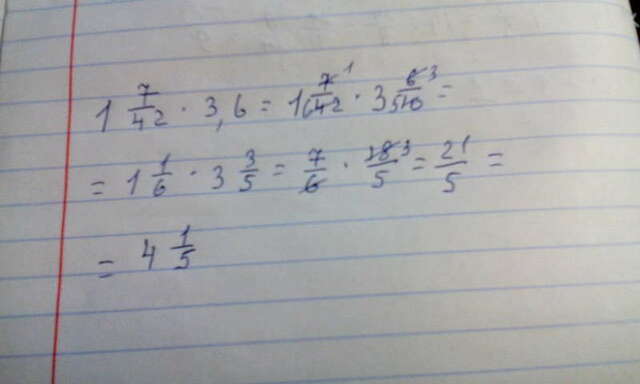 1 7/42 · 3,6 = 1 7/42 1 6 · 3 6/10 3 5 =
= 1 1/6 · 3 3/5 = 7/6 · 18/5 3 = 21/5 =
= 4 1/5